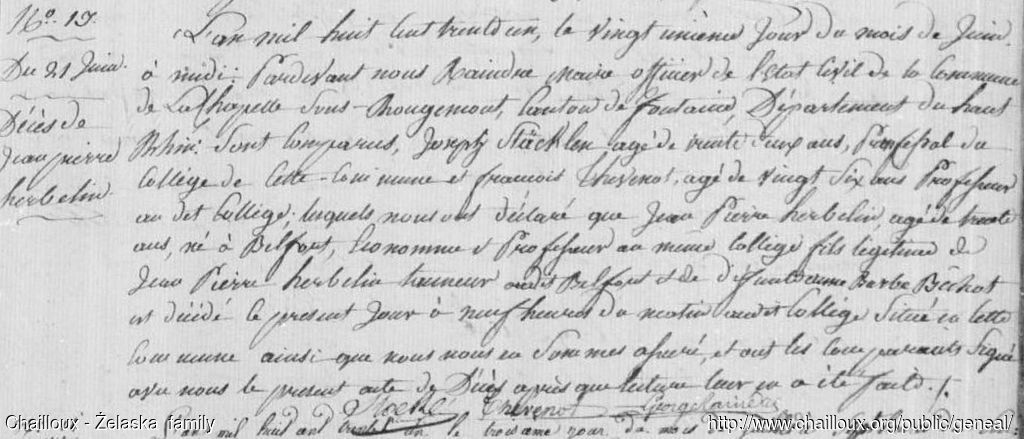 N.º 19.
Du 21 Juin.
Décès de
Jean pierre
herbelin
L'an mil huit cent trente un, le vingt unième Jour du mois de Juin.
à midi. Pardevant nous Raindre Maire officier de l'Etat Civil de la Commune
de La Chapelle Sous-Rougemont, Canton de fontaine, Département du haut
Rhin. Sont Comparus, Joseph Stäcklen agé de trente deux ans, Principal du
Collège de Cette Commune et francois thevenot, agé de vingt Six ans Professeur
au dit Collège. lesquels nous ont déclaré que Jean Pierre herbelin agé de trente
ans, né à Bélfort, Economme et Professeur au même Collège fils légitime de
Jean Pierre herbelin tanneur audit Belfort et de défunte anne Barbe Béchot
est décédé le présent Jour à neuf heures du matin audit Collège Situé en Cette
Commune ainsi que nous nous en Sommes assuré, et ont les Comparants Signé
avec nous le présent acte de Décès après que lecture leur en a été faite.
Thevenot
L'an mil huit cent trente un le troisième jour du mois de
Chailloux - Żelaska family
http://www.chailloux.org/public/geneal/